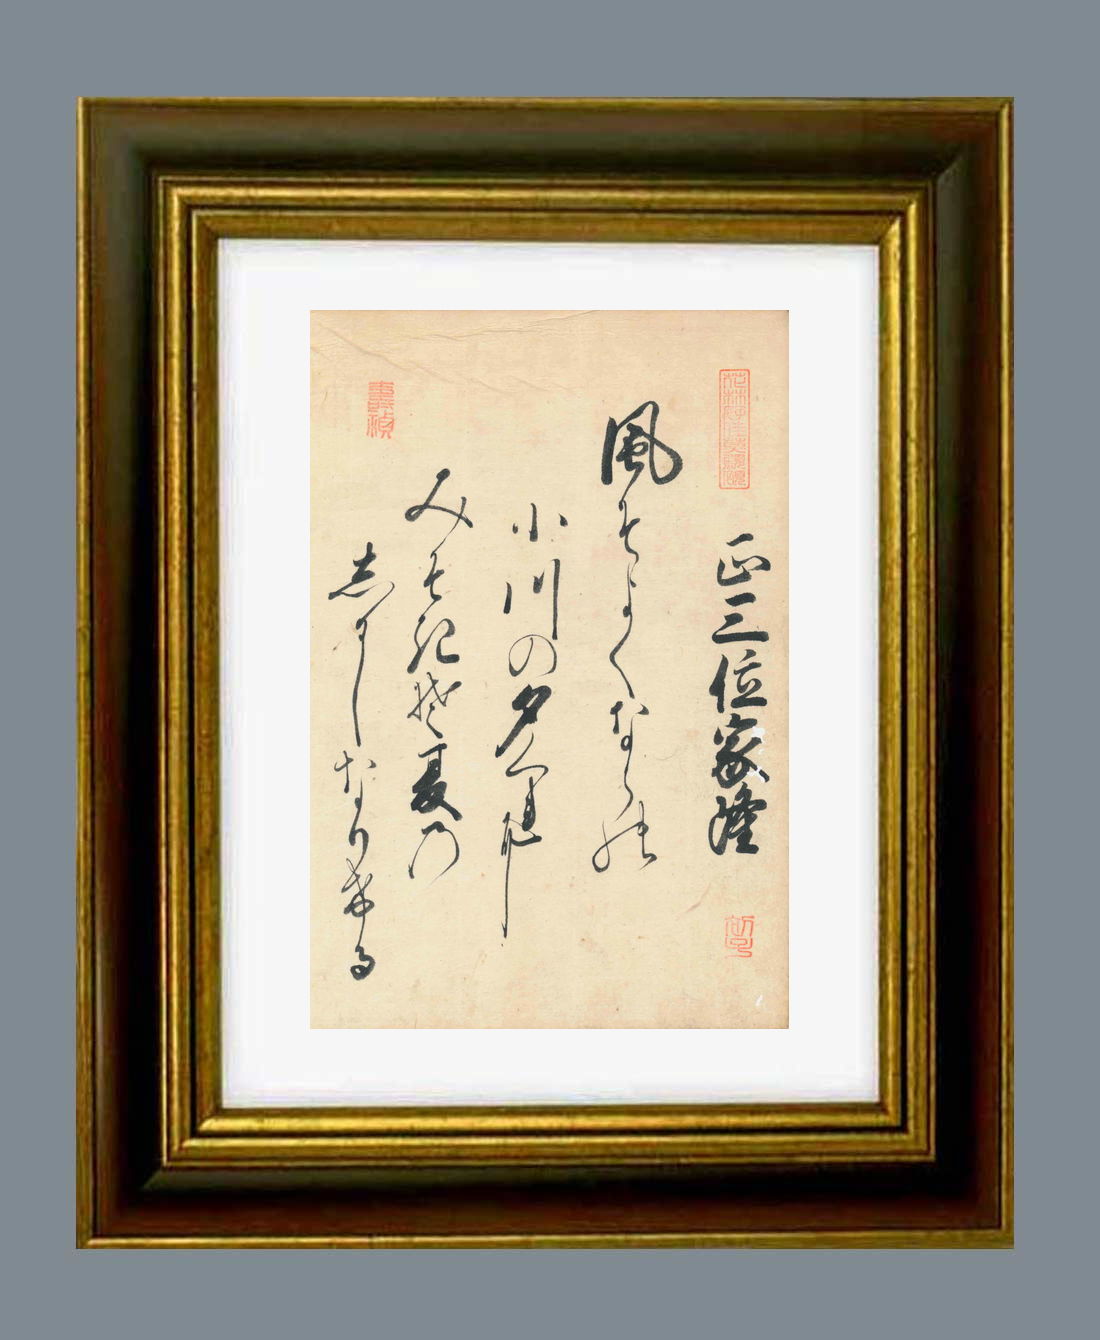 正三位家隆
風そよくならの
小川の夕くれは
みそきそ夏の
志るしなりける